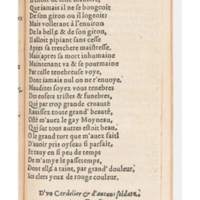 Que iamais il ne se bougeoit
De son giron ou il logeoit:
Mais volleront à l'enuiron
De la belle & de son giron,
Il alloit pipiant sans cesse
Apres sa treschere maistresse,
Mais apres sa mort inhumaine
Maintenant va & se pourmaine
Par ceste tenebreuse voye,
Dont iamais nul on ne r'enuoye,
Maudites soyez vous tenebres
Des enfers tristes & funebres,
Qui par trop grande cruauté
Rauissez toute grand' beauté,
Ost m'auez le gay Moyneau,
Qui sur tout autres estoit beau,
O le grand tort que m'auez fait
D'auoir pris oyseau si parfait,
Et rauy en si peu de temps
De m'amye le passetemps,
Dont elle a taint, par grand' douleur,
Ses clers yeux de rouge couleur.
D'vn Cordelier & d'aucuns soldatz,